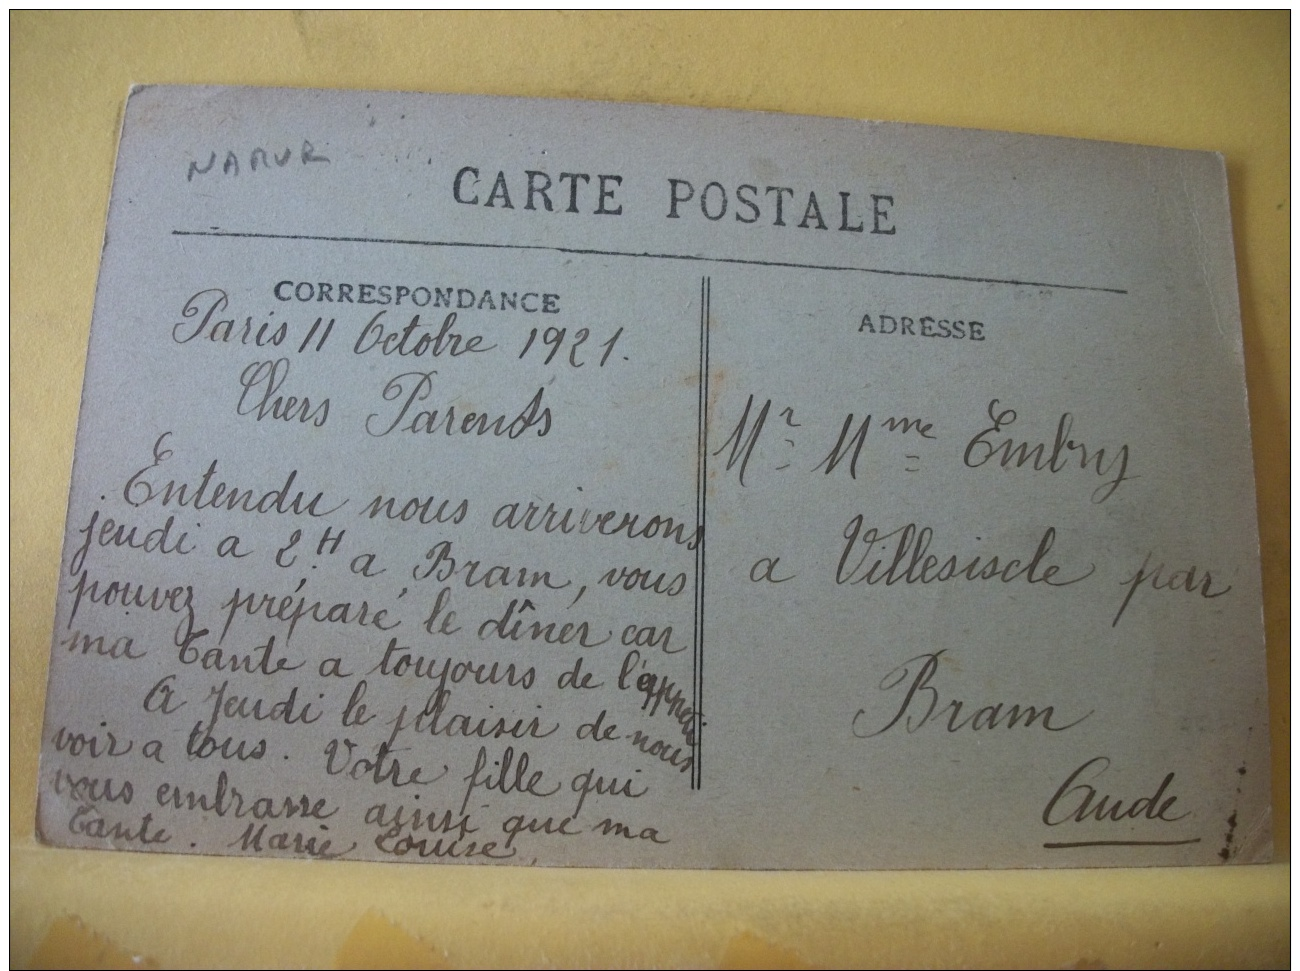 NAMUR
CARTE POSTALE
CORRESPONDANCE
Paris 11 Octobre 1921.
Chers Parents
Entendu nous arriverons
jeudi a 2H. a Bram, vous
pouvez préparé le dîner car
ma Tante a toujours de l'appétit
A Jeudi le plaisir de nous
voir a tous. Votre fille qui
vous embrasse ainsi que ma
Tante. Marie Louise
ADRESSE
Mr Mme Embry
a Villesiscle par
Bram
Aude